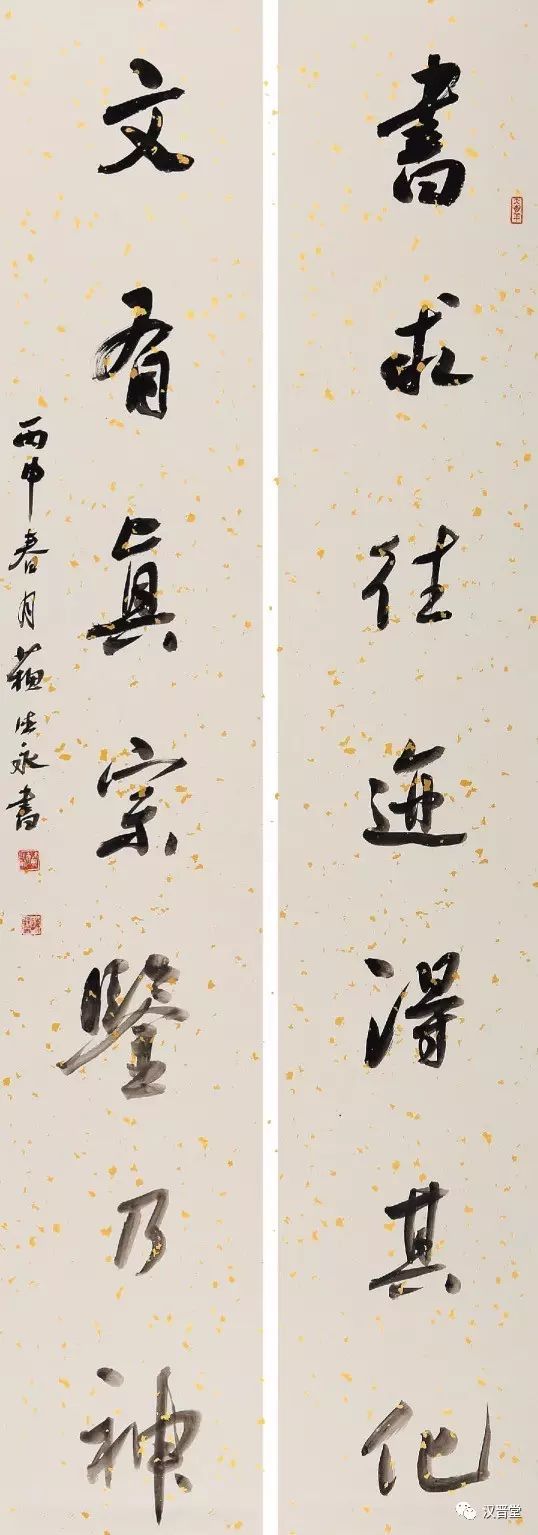 書求往迹得其化
文有眞宗鑒乃神
丙申春月蘓永書
汉晋堂